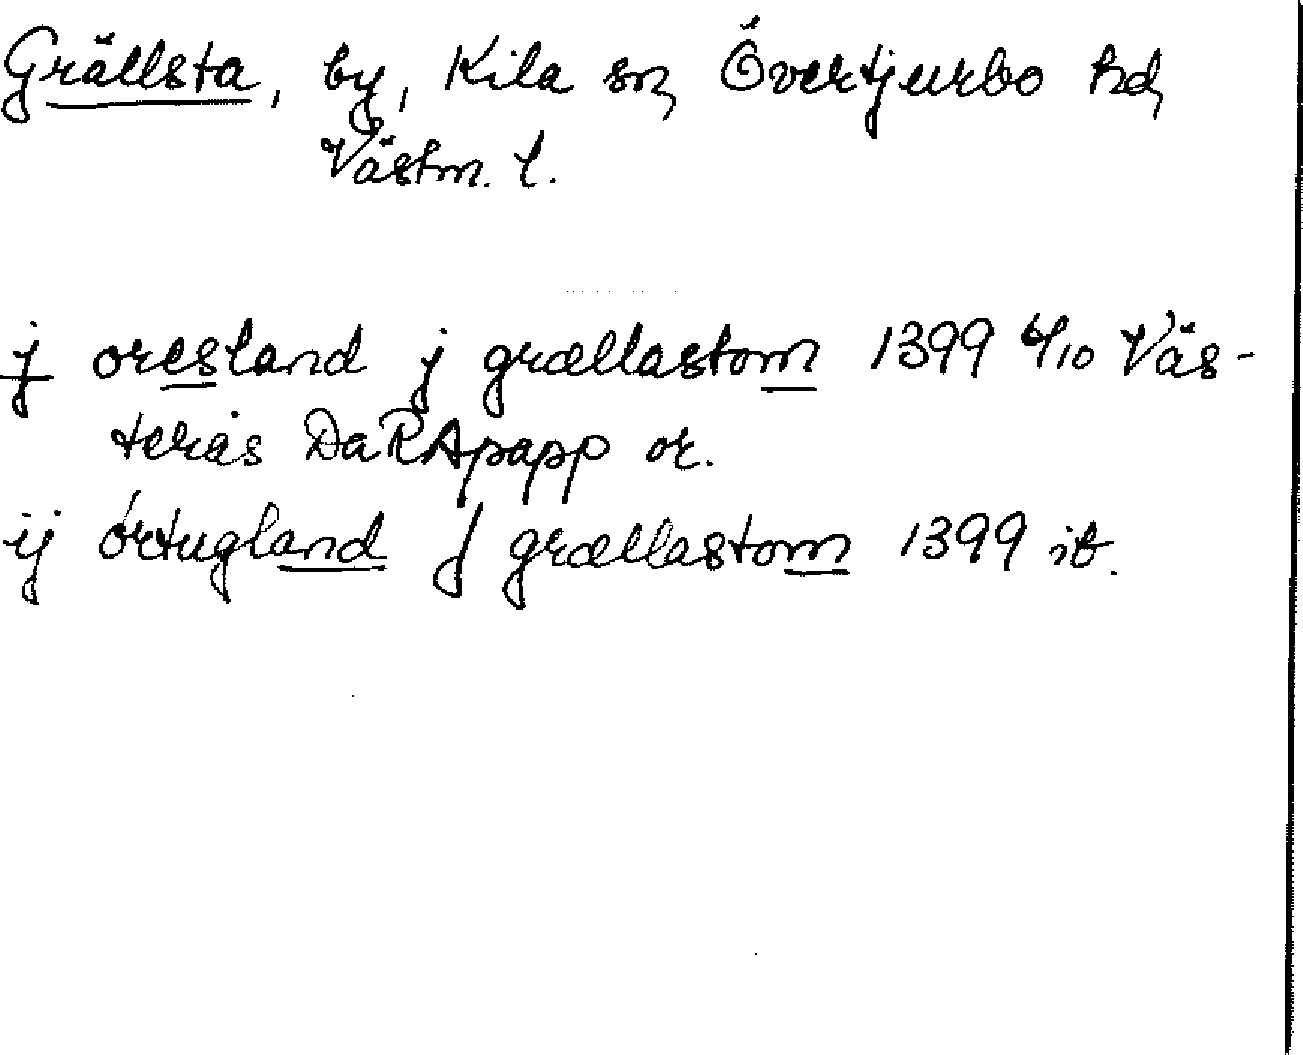 Grällsta, by, Kila sn, Övertjurbo hd,
Västm. l.
j oresland j grællastom 1399 6/10 Väs-
terås DaRApapp or.
ij örtugland J grællastom 1399 ib.